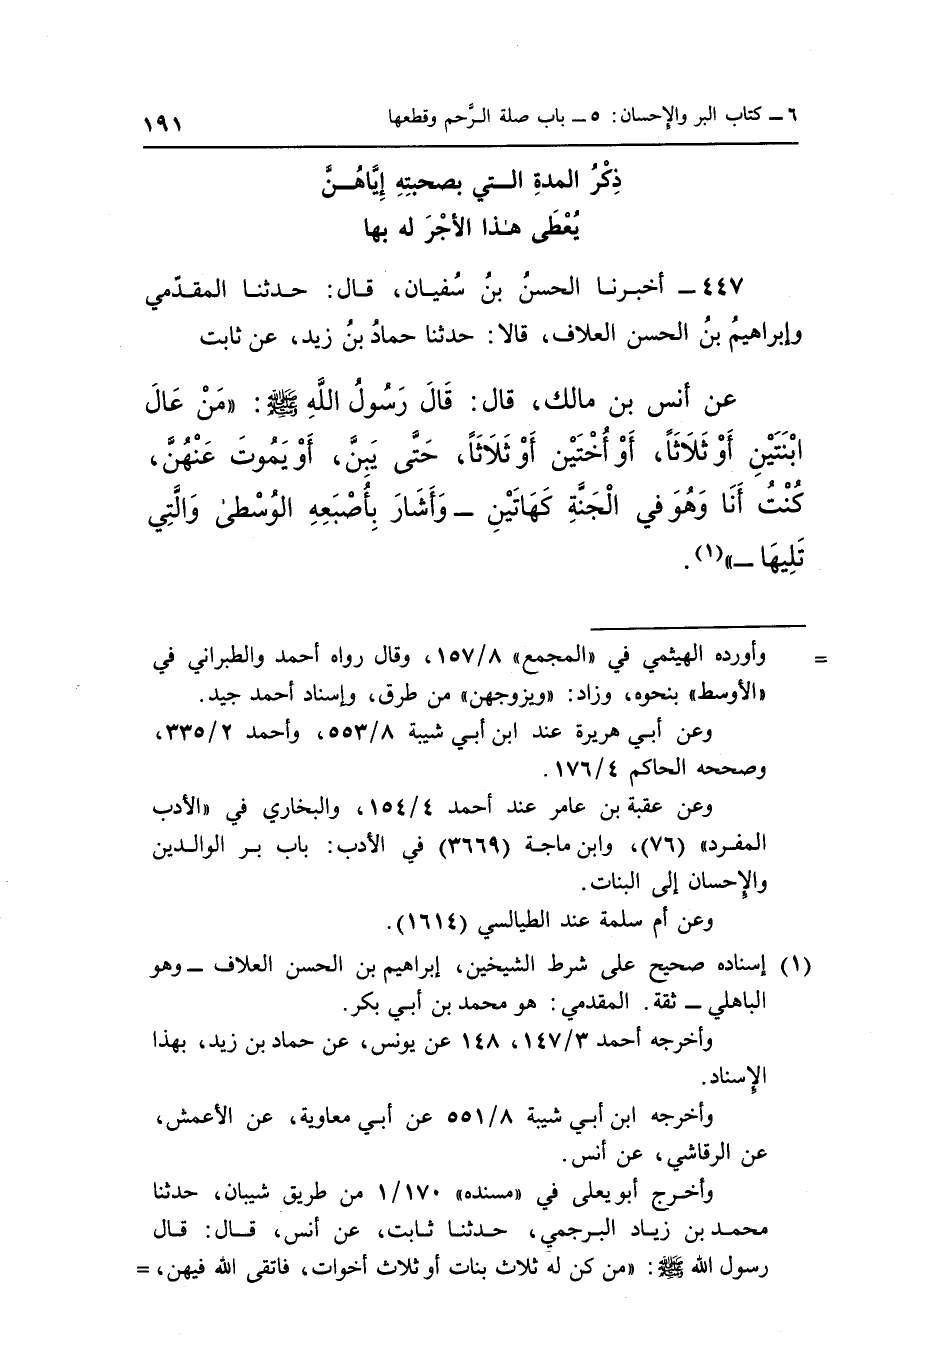 ٦ ــ كتاب البر والإحسان: ٥ ــ باب صلة الرَّحم وقطعها
١٩١
ذِكْرُ المدةِ التي بصحبتِهِ إِيَّاهُنَّ
يُعْطَى هٰذا الأجْرَ له بها
٤٤٧ ــ أخبرنا الحسنُ بنُ سُفيان، قال: حدثنا المقدّمي
وإبراهيمُ بنُ الحسن العلاف، قالا: حدثنا حمادُ بنُ زيد، عن ثابت
عن أنس بن مالك، قال: قَالَ رَسُولُ اللَّهِ ﷺ: «مَنْ عَالَ
ابْنَتَيْنِ أَوْ ثَلَاثاً، أَوْ أُخْتَيْنِ أَوْ ثَلَاثاً، حَتَّى يَبِنَّ، أَوْ يَمُوتَ عَنْهُنَّ،
كُنْتُ أَنَا وَهُوَ في الْجَنَّةِ كَهَاتَيْنِ ــ وَأَشَارَ بِأُصْبَعِهِ الوُسْطىٰ وَالَّتِي
تَلِيهَا ــ»(١).
= وأورده الهيثمي في «المجمع» ١٥٧/٨، وقال رواه أحمد والطبراني في
«الأوسط» بنحوه، وزاد: «ويزوجهن» من طرق، وإسناد أحمد جيد.
وعن أبي هريرة عند ابن أبي شيبة ٥٥٣/٨، وأحمد ٣٣٥/٢،
وصححه الحاكم ١٧٦/٤.
وعن عقبة بن عامر عند أحمد ١٥٤/٤، والبخاري في «الأدب
المفرد» (٧٦)، وابن ماجة (٣٦٦٩) في الأدب: باب بر الوالدين
والإحسان إلى البنات.
وعن أم سلمة عند الطيالسي (١٦١٤).
(١) إسناده صحيح على شرط الشيخين، إبراهيم بن الحسن العلاف ــ وهو
الباهلي ــ ثقة. المقدمي: هو محمد بن أبي بكر.
وأخرجه أحمد ١٤٧/٣، ١٤٨ عن يونس، عن حماد بن زيد، بهذا
الإسناد.
وأخرجه ابن أبي شيبة ٥٥١/٨ عن أبي معاوية، عن الأعمش،
عن الرقاشي، عن أنس.
وأخرج أبو يعلى في «مسنده» ١/١٧٠ من طريق شيبان، حدثنا
محمد بن زياد البرجمي، حدثنا ثابت، عن أنس، قال: قال
رسول الله ﷺ: «من كن له ثلاث بنات أو ثلاث أخوات، فاتقى الله فيهن، =